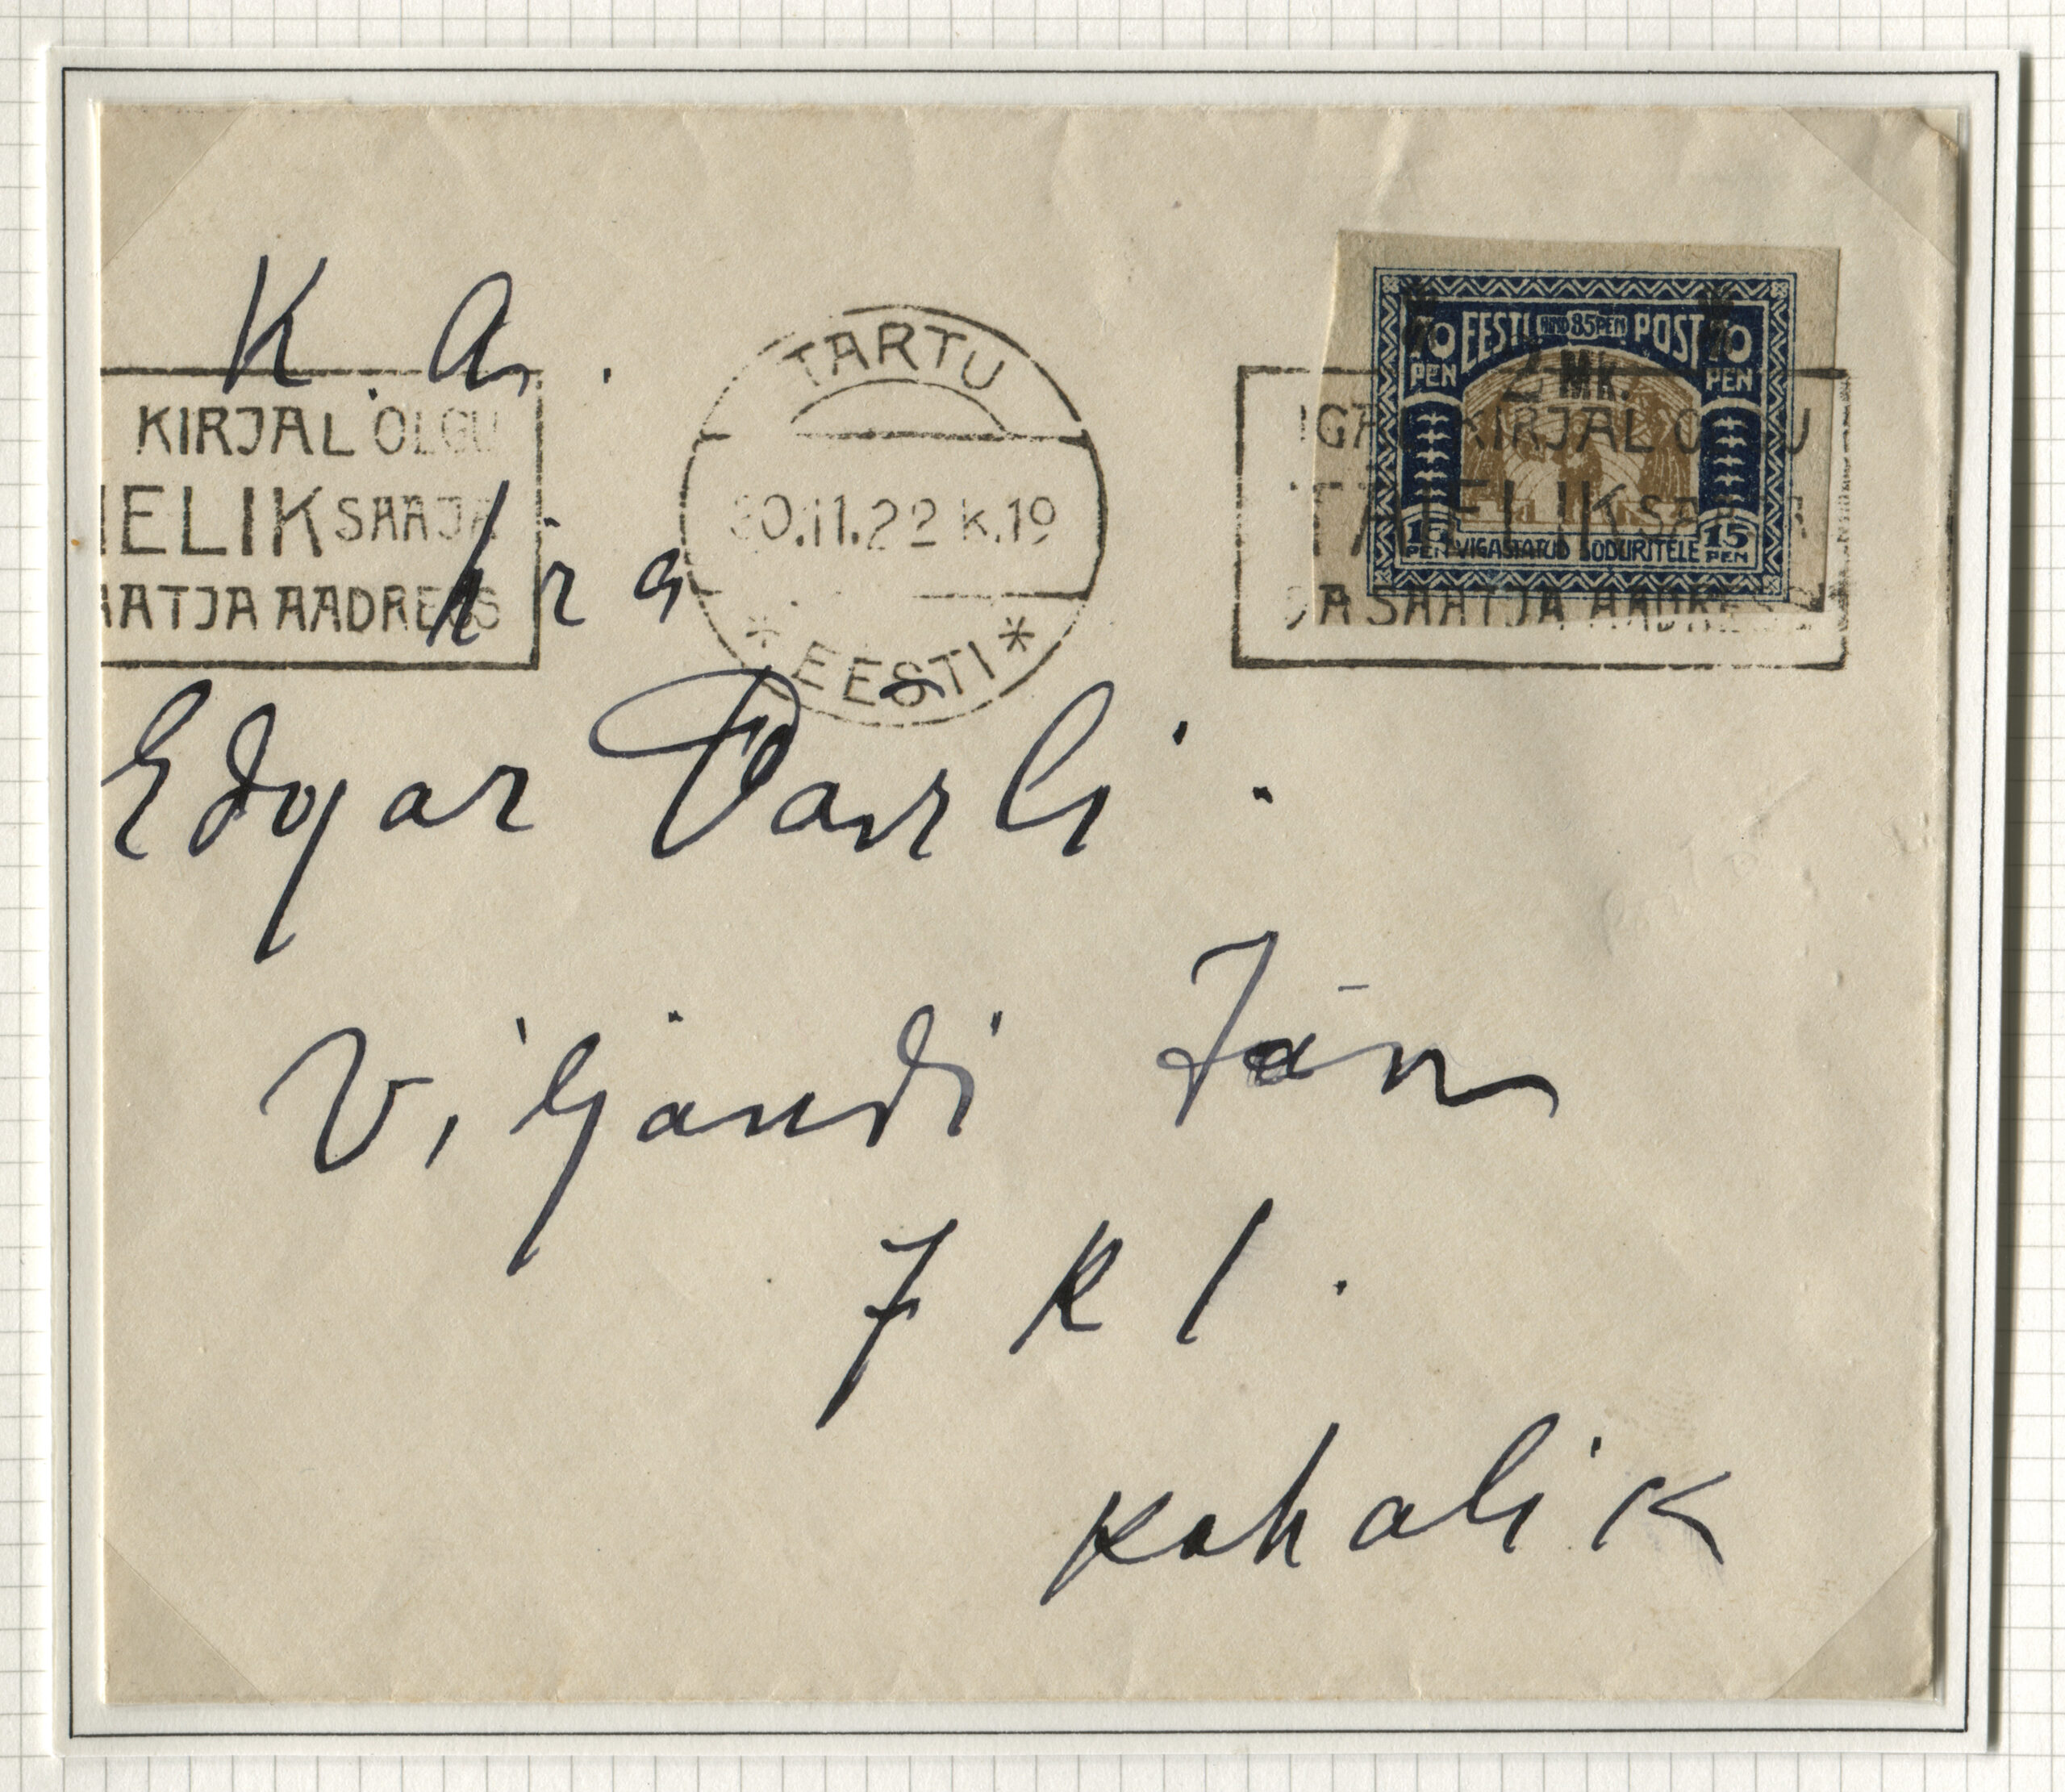 K. A.
KIRJAL OLGU
IELIK SAAJA
AATJA AADRESS
TARTU
30.11.22 K.19
* EESTI *
70 EESTI HIND 85 PEN POST 70
PEN PEN
2 MK.
15 PEN VIGASTATUD SÕDURITELE 15 PEN
IGAL KIRJAL OLGU
TÄIELIK SAAJA
JA SAATJA AADRESS
hra
Edgar
Viljandi tän
7 kl.
Kohalik